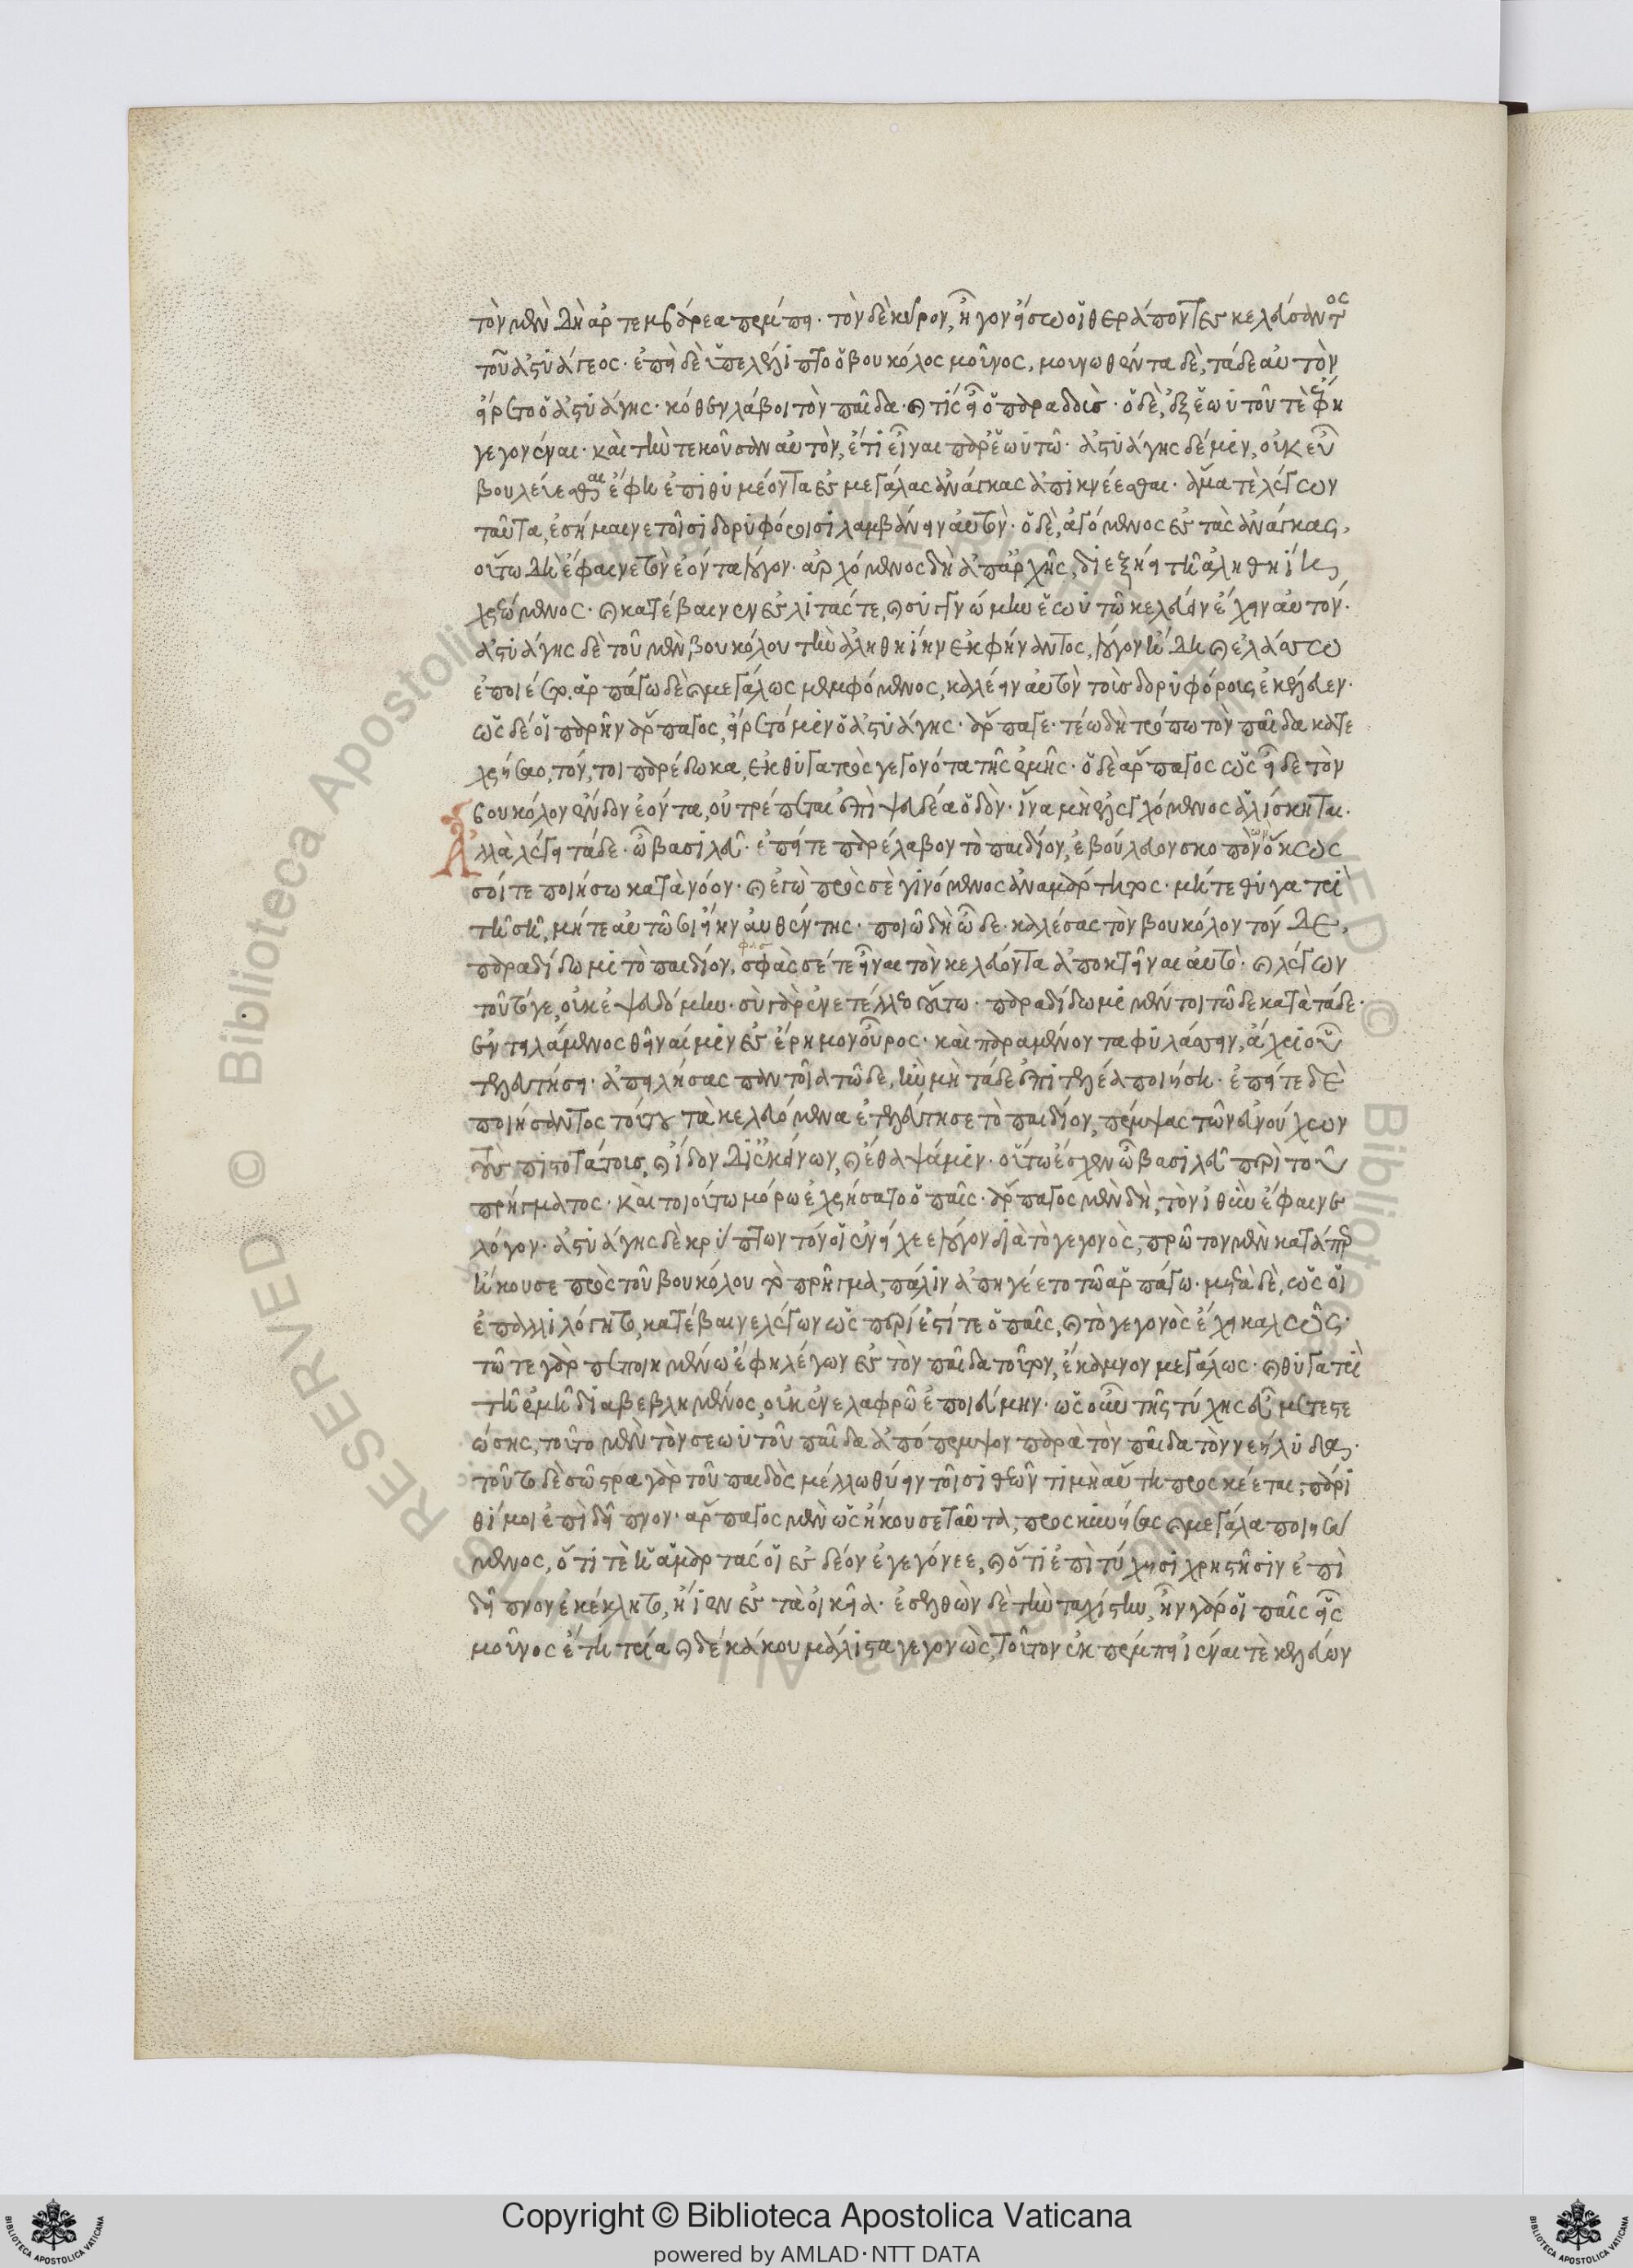 τὸν μὲν δὴ ἀρτεμβάρεα πέμπει· τὸν δὲ κῦρον, ἦγον εἴσω οἱ θεράποντες κελεύσαντος
τοῦ ἀστυάγεος· ἐπεὶ δὲ ὑπελέλειπτο ὁ βουκόλος μοῦνος, μουνωθέντα δὲ, τάδε αὐτὸν
εἴρετο ὁ ἀστυάγης· κόθεν λάβοι τὸν παῖδα· καὶ τίς εἴη ὁ παραδούς· ὁ δὲ, ἐξ ἑωυτοῦ τὲ ἔφη
γεγονέναι· καὶ τὴν τεκοῦσαν αὐτὸν, ἔτι εἶναι παρ' ἑωυτῶ· ἀστυάγης δέ μιν, οὐκ εὖ
βουλεύεσθαι ἔφη ἐπιθυμέοντα ἐς μεγάλας ἀνάγκας ἀπικνέεσθαι· ἅμα τὲ λέγων
ταῦτα, ἐσήμαινε τοῖσι δορυφόροισι λαμβάνειν αὐτὸν· ὁ δὲ, ἀγόμενος ἐς τὰς ἀνάγκας,
οὕτω δὴ ἔφαινε τὸν ἐόντα λόγον· ἀρχόμενος δὴ ἀπαρχῆς, διεξήει τῆ ἀληθηίη
χρεώμενος· καὶ κατέβαινεν ἐς λιτάς τε, καὶ συγγνώμην ἑωυτῶ κελεύων ἔχειν αὐτόν·
ἀστυάγης δὲ τοῦ μὲν βουκόλου τὴν ἀληθηίην ἐκφήναντος, λόγον ἤδη καὶ ἐλάσσω
ἐποιέετο. ἁρπάγω δὲ καὶ μεγάλως μεμφόμενος, καλέειν αὐτὸν τοὺς δορυφόρους ἐκέλευεν·
ὡς δέ οἱ παρῆν ἅρπαγος, εἴρετό μιν ὁ ἀστυάγης· ἅρπαγε· τέω δὴ τρόπω τὸν παῖδα κατε
χρήσαο, τόν, τοι παρέδωκα, ἐκ θυγατρὸς γεγονότα τῆς ἐμῆς· ὁ δὲ ἅρπαγος ὡς εἶδε τὸν
βουκόλον ἔνδον ἐόντα, οὐ τρέπεται ἐπὶ ψευδέα ὁδὸν· ἵνα μὴ ἐλεγχόμενος ἁλίσκηται·
Ἀλλὰ λέγει τάδε· ὦ βασιλεῦ· ἐπείτε παρέλαβον τὸ παιδίον, ἐβούλευον σκοπὸν ὅκως
σοί τε ποιήσω κατὰ νόον· καὶ ἐγὼ πρὸς σὲ γινόμενος ἀναμάρτητος· μήτε θυγατρὶ
τῆ σῆ, μήτε αὐτῶ σι εἴην αὐθέντης· ποιῶ δὴ ὧδε· καλέσας τὸν βουκόλον τόν δε,
παραδίδωμι τὸ παιδίον, σφὰς σέ τε εἶναι τὸν κελεύοντα ἀποκτεῖναι αὐτό· καὶ λέγων
τοῦτό γε, οὐκ ἐψευδόμην· σὺ γὰρ ἐνετέλλεο οὕτω· παραδίδωμι μέν τοι τῶδε κατὰ τάδε·
ἐντειλάμενος θεῖναί μιν ἐς ἔρημον οὖρος· καὶ παραμένοντα φυλάσσειν, ἄχρι οὗ
τελευτήση· ἀπειλήσας παντοῖα τῶδε, ἢν μὴ τάδε ἐπιτελέα ποιήση· ἐπείτε δὲ
ποιήσαντος τούτου τὰ κελευόμενα ἐτελεύτησε τὸ παιδίον, πέμψας τῶν εὐνούχων
τοὺς πιστοτάτους, καὶ εἶδον δι' ἐκείνων, καὶ ἔθαψά μιν· οὕτω ἔσχεν ὦ βασιλεῦ περὶ τοῦ
πρήγματος· καὶ τοιούτω μόρω ἐχρήσατο ὁ παῖς· ἅρπαγος μὲν δὴ, τὸν ἰθὺν ἔφαινε
λόγον· ἀστυάγης δὲ κρύπτων τόν οἱ ἐνήχεε λόγον διὰ τὸ γεγονὸς, πρῶτον μὲν κατάπερ
ἤκουσε πρὸς τοῦ βουκόλου τὸ πρῆγμα, πάλιν ἀπηγέετο τῶ ἁρπάγω· μετὰ δὲ, ὡς οἱ
ἐπαλλιλόγητο, κατέβαινε λέγων ὡς περίεστί τε ὁ παῖς, καὶ τὸ γεγονὸς ἔχει καλῶς·
τῶ τε γὰρ πεποιημένω ἔφη λέγων ἐς τὸν παῖδα τοῦτον, ἔκαμνον μεγάλως· καὶ θυγατρὶ
τῆ ἐμῆ διαβεβλημένος, οὐκ ἐν ἐλαφρῶ ἐποιεύμην· ὡς οὖν τῆς τύχης εὖ μετεστε
ώσης, τοῦτο μὲν τὸν σεωυτοῦ παῖδα ἀπόπεμψον παρὰ τὸν παῖδα τὸν νεήλυδα·
τοῦτο δὲ σῶστρα γὰρ τοῦ παιδὸς μέλλω θύειν τοῖσι θεῶν τιμὴ αὕτη προσκέεται, πάρι
θί μοι ἐπὶ δεῖπνον· ἅρπαγος μὲν ὡς ἤκουσε ταῦτα, προσκυνήσας καὶ μεγάλα ποιησά
μενος, ὅτι τὲ ἡ ἁμαρτάς οἱ ἐς δέον ἐγεγόνεε, καὶ ὅτι ἐπὶ τύχησι χρηστῆσιν ἐπὶ
δεῖπνον ἐκέκλητο, ἤιεν ἐς τὰ οἰκεῖα· ἐσελθὼν δὲ τὴν ταχίστην, ἦν γάρ οἱ παῖς εἷς
μοῦνος ἔτη τρία καὶ δέκα κου μάλιστα γεγονὼς, τοῦτον ἐκπέμπει ἰέναι τὲ κελεύων